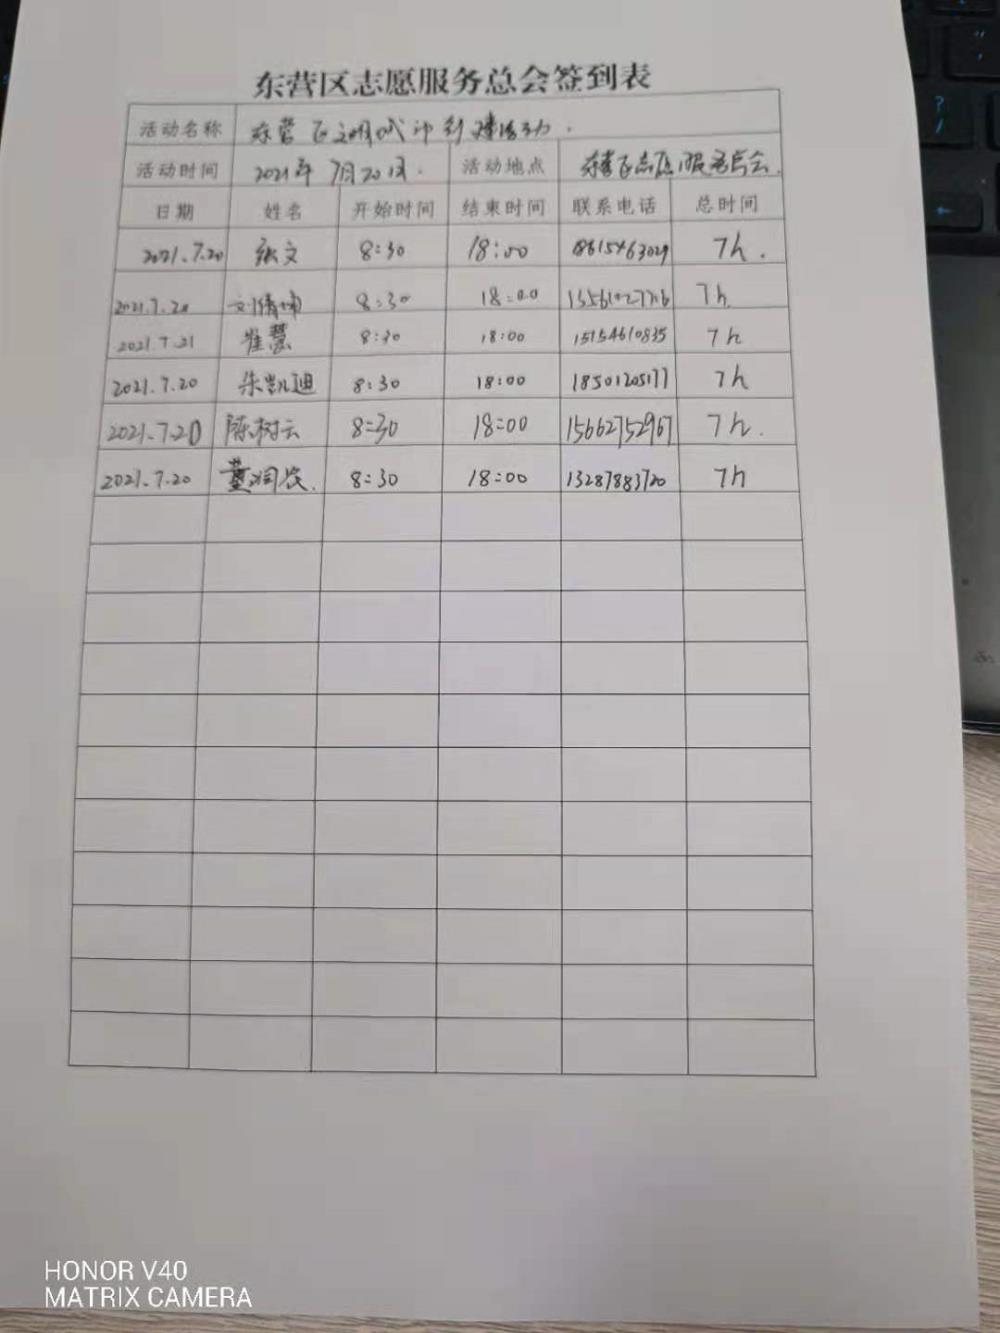 东营区志愿服务总会签到表
活动名称 东营区文明城市创建活动.
活动时间 2021年7月20日. 活动地点 东营区志愿服务总会.
日期 姓名 开始时间 结束时间 联系电话 总时间
2021.7.20 张文 8:30 18:00 7h.
2021.7.20 8:30 18:00 7h.
2021.7.21 崔慧 8:30 18:00 15154610835 7h
2021.7.20 朱凯迪 8:30 18:00 18501205177 7h
2021.7.20 陈树云 8:30 18:00 15662752967 7h.
2021.7.20 董润农. 8:30 18:00 13287883720 7h
HONOR V40
MATRIX CAMERA